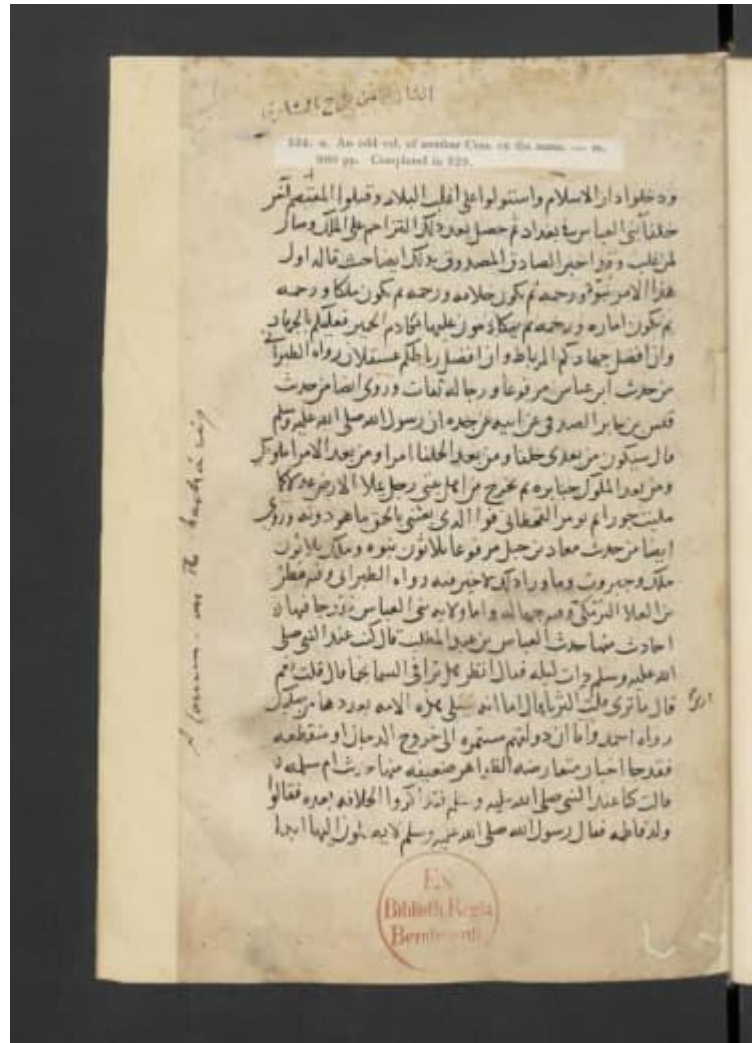 التاريخ من
534. a. An odd vol. of another Com. on the same. — m.
980 pp. Completed in 829.
ودخلوا دار الاسلام واستولوا على اغلب البلاد وقتلوا المعتصم آخر
خلفا بنى العباس ببغداد ثم حصل بعد ذلك التزاحم على الملك وصار
لمن غلب وقد اخبر الصادق المصدوق بذلك ايضا حيث قال اول
هذا الامر نبوة ورحمة ثم يكون خلافه ورحمه ثم يكون ملكا ورحمه
ثم يكون اماره ورحمه ثم عليها تكادم الحمير فعليكم بالجهاد
وان افضل جهادكم الرباط وان افضل رباطكم عسقلان رواه الطبرا
من حديث ابن عباس مرفوعا ورجاله ثقات وروى ايضا من حديث
قيس بن جابر الصدفي عن ابيه عن جده ان رسول الله صلى الله عليه وسلم
قال سيكون من بعدى خلفا ومن بعد الخلفا امرا ومن بعد الامرا ملوك
ومن بعد الملوك جبابره ثم يخرج من اهل بيتى رجل يملا الارض عدلا كما
مليت جورا ثم يومر القحطانى فوالذى بعثنى بالحق ما هو دونه وروى
ايضا من حديث معاذ بن جبل مرفوعا ثلاثون نبوه وملك ثلاثون
ملك وجبروت وما ورا ذلك لا خير فيه رواه الطبرانى وفيه مطر
بن العلا الرملى واما ولايه بنى العباس فيها
احاديث منها حديث العباس بن عبد المطلب قال كنت عند النبى صلى
الله عليه وسلم ذات ليله فقال انظر هل ترى فى السما نجما قال قلت نعم
قال ما ترى قلت الثريا قال اما انه يملى هذه الامه بعددها من صلبك
رواه احمد واما ان دولتهم مستمره الى خروج الدجال او منقطعه
فقد جا اخبار متعارضه الظواهر ضعيفه منها حديث ام سلمه
قالت كنا عند النبى صلى الله عليه وسلم فتذاكروا الخلافه بعده فقالوا
ولد فاطمه فقال رسول الله صلى الله عليه وسلم لا يصلون اليها ابدا
Ex
Biblioth. Regia
Berolinensi.